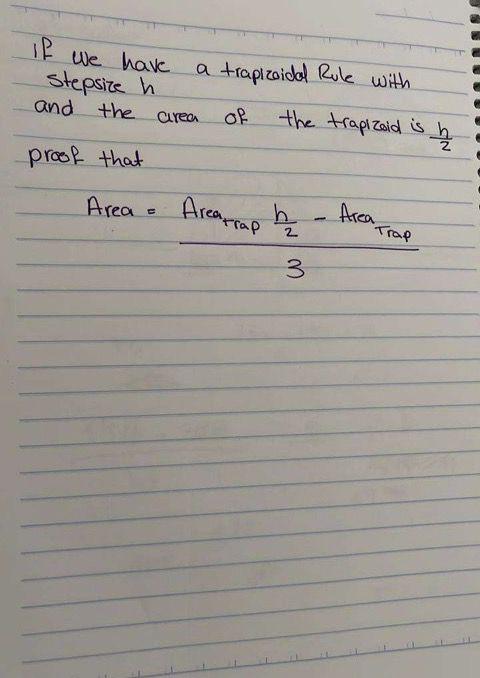 if we have a trapizoidal Rule with
stepsize h
and the area of the trapizoid is h/2
proof that
Area = Area_trap h/2 - Area_Trap
3